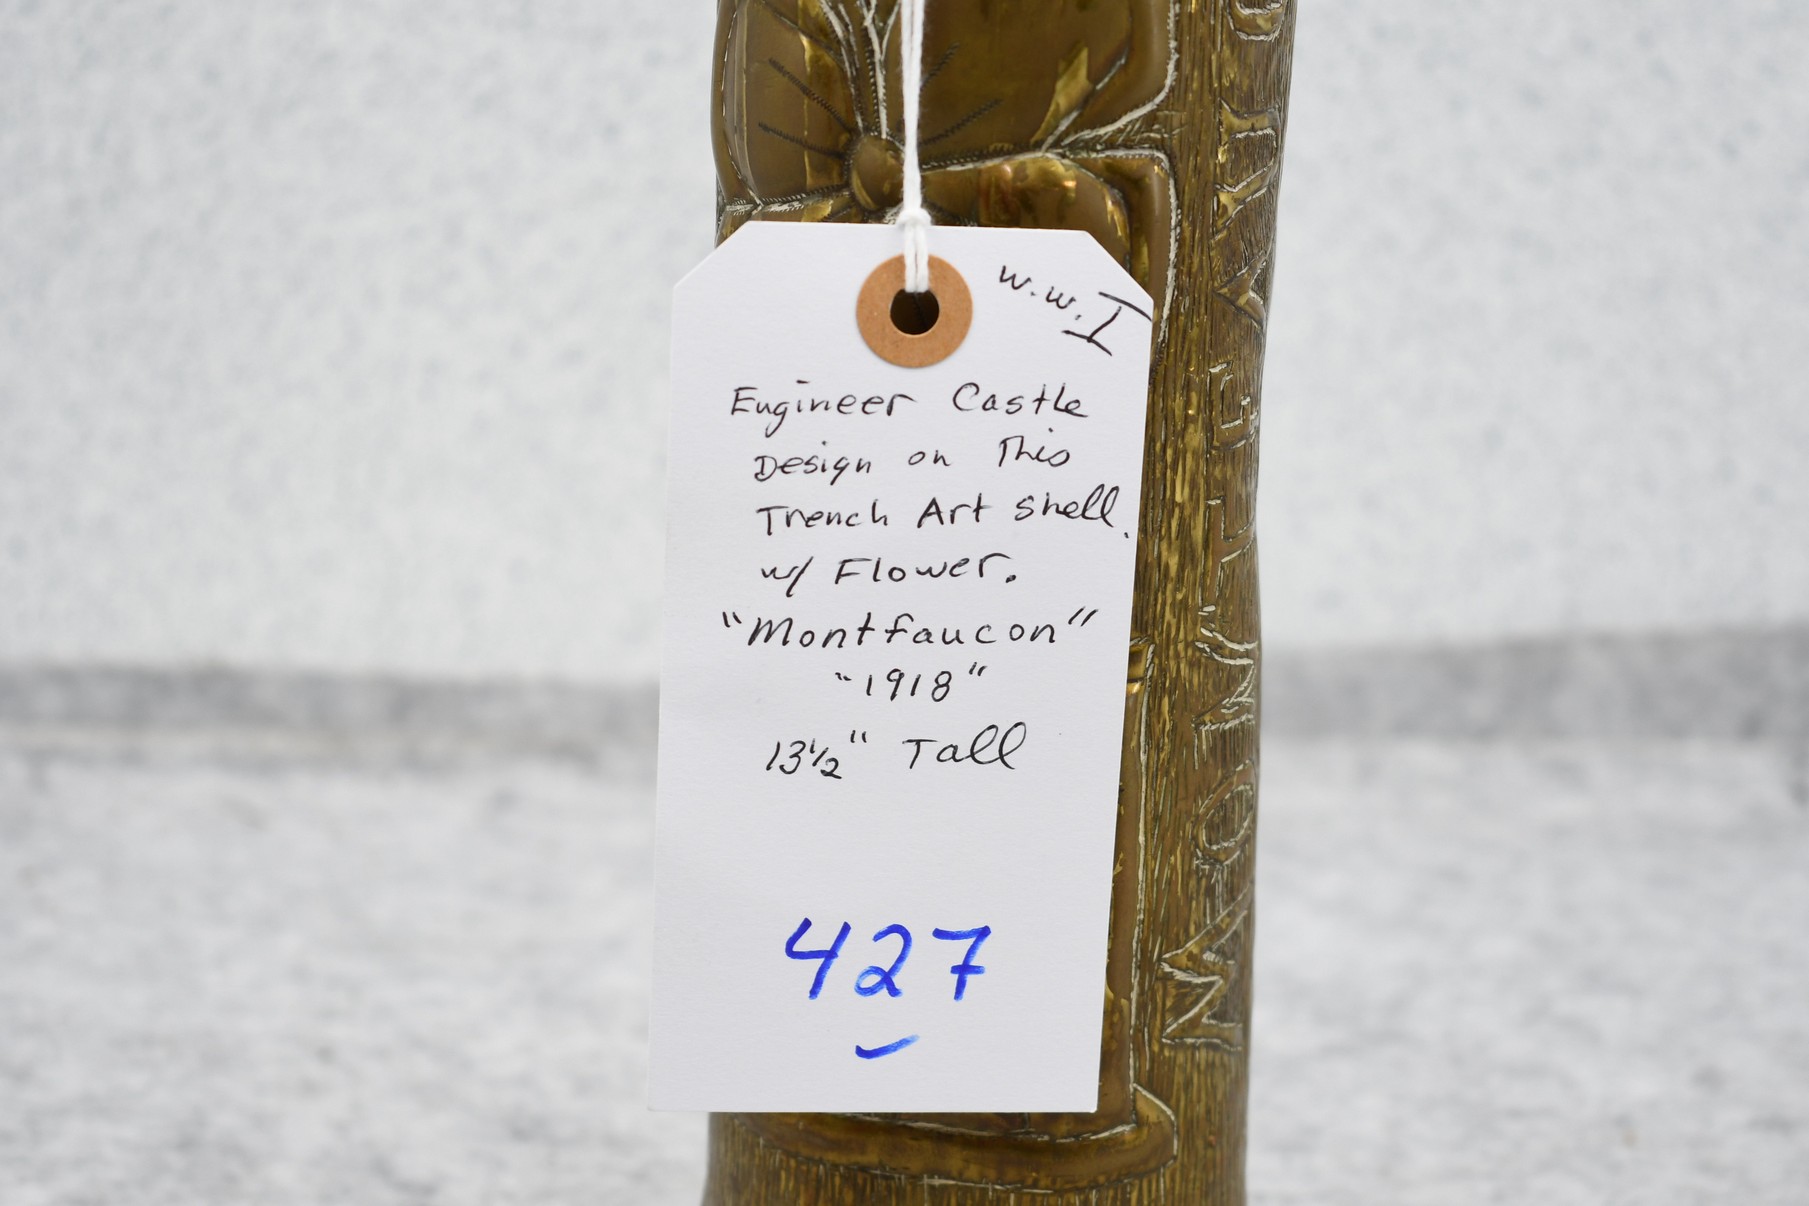 w.w.I
Engineer Castle
Design on This
Trench Art Shell.
w/ Flower.
"Montfaucon"
"1918"
13½" Tall
427
MONTFAUC